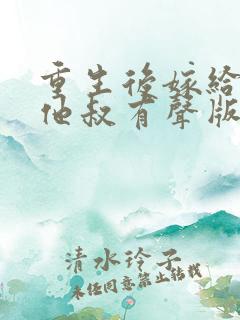 重生後嫁給
他叔有聲版
清水玲子
未任同意禁止轉載